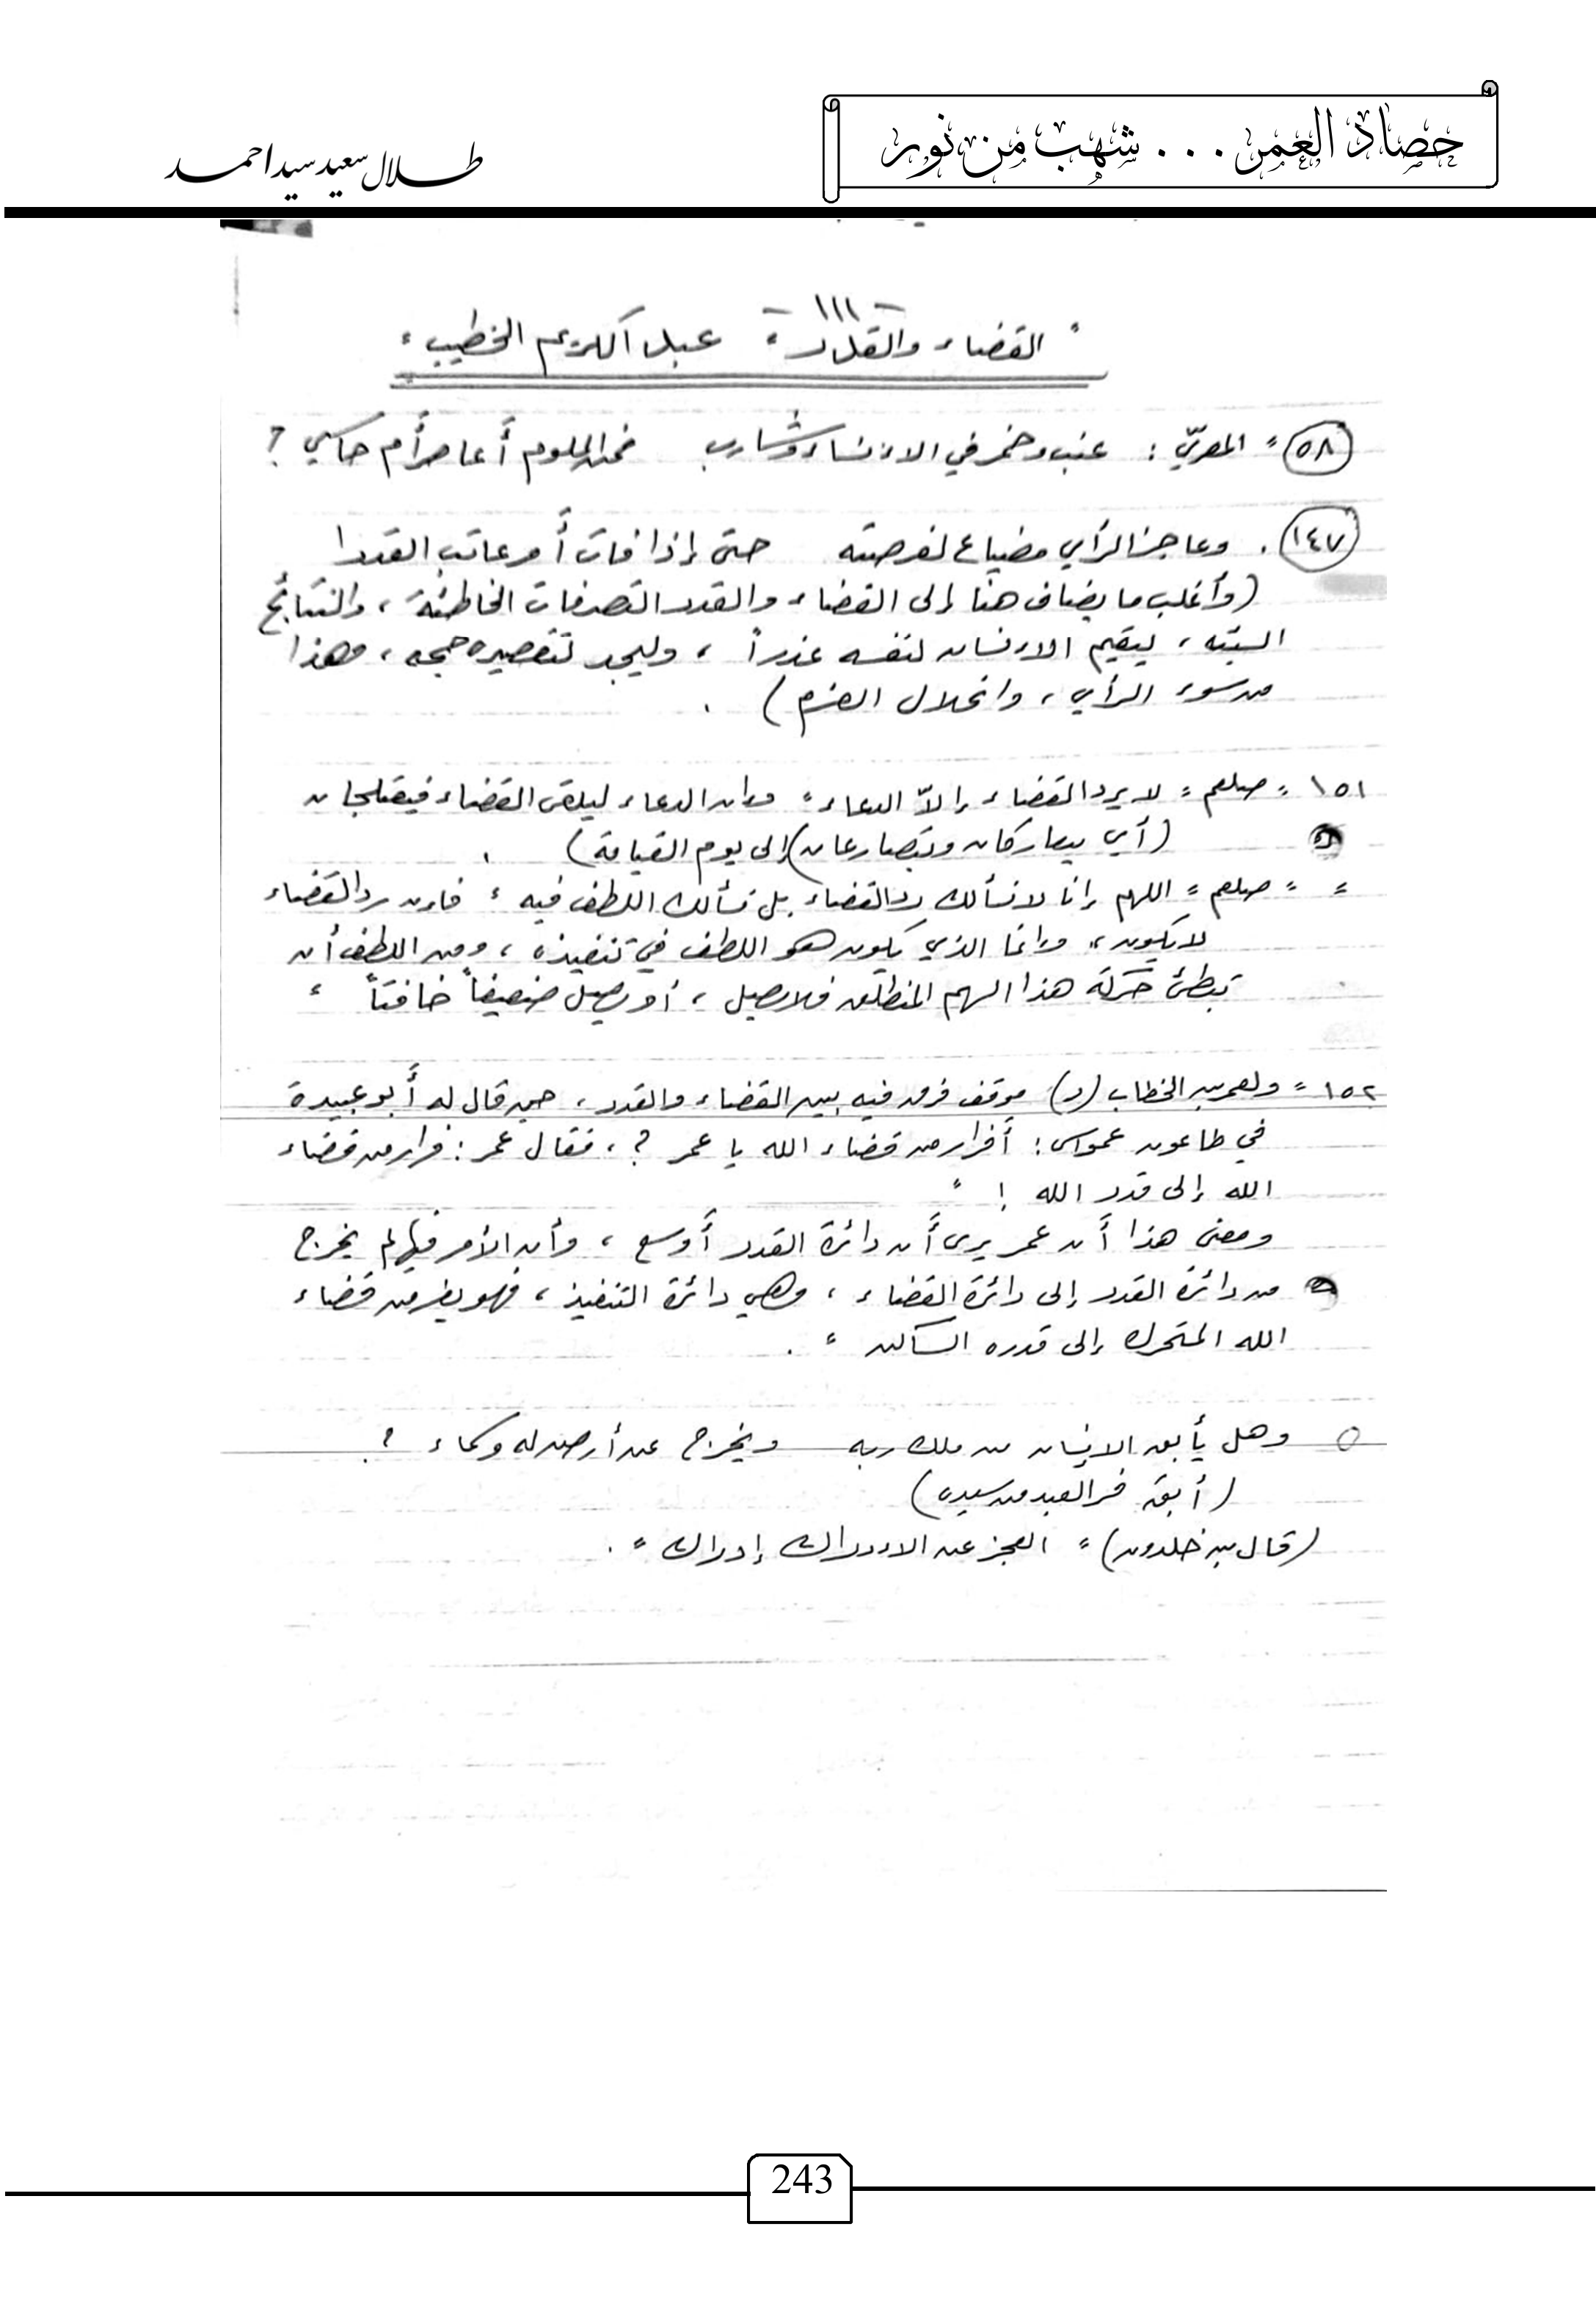 حصاد العمر . . . شهب من نور
طلال سعيد سيد احمد
- ١١١ -
" القضاء والقدر " عبد الكريم الخطيب "
(٥٨) " المعريّ : عنب وخمر في الاناء وشارب فمن الملوم أعاصر أم حاسي ?
(١٤٧) . وعاجز الرأي مضياع لفرصته حتى إذا فات أمر عاتب القدرا
(وأغلب ما يضاف هنا إلى القضاء والقدر التصرفات الخاطئة ، والنتائج
السيئة ، ليقيم الانسان لنفسه عذراً ، وليجد لتقصيره حجه ، وهذا
من سوء الرأي ، وانحلال العزم ) .
١٥١ " صلعم " لا يرد القضاء إلاّ الدعاء " وان الدعاء ليلقى القضاء فيعتلجان
(أي يتعاركان ويتصارعان) إلى يوم القيامة) .
" " صلعم " اللهم إنا لا نسألك رد القضاء بل نسألك اللطف فيه " فان رد القضاء
لا يكون ، وانما الذي يكون هو اللطف في تنفيذه ، ومن اللطف أن
تبطئ حركة هذا السهم المنطلق فلا يصل ، أو يصل ضعيفاً خافتاً "
١٥٢ " ولعمر بن الخطاب (ر) موقف فرق فيه بين القضاء والقدر ، حين قال له أبو عبيدة
في طاعون عمواس : أفرار من قضاء الله يا عمر ? ، فقال عمر : فرار من قضاء
الله إلى قدر الله ! "
ومعنى هذا أن عمر يرى أن دائرة القدر أوسع ، وأن الأمر فيها لم يخرج
من دائرة القدر إلى دائرة القضاء ، وهي دائرة التنفيذ ، فهو يفر من قضاء
الله المتحرك إلى قدره الساكن " .
وهل يأبق الإنسان من ملك ربه ويخرج عن أرض له وسماء ?
( أبق فر العبد من سيده )
(قال بن خلدون) " العجز عن الادراك إدراك " .
243